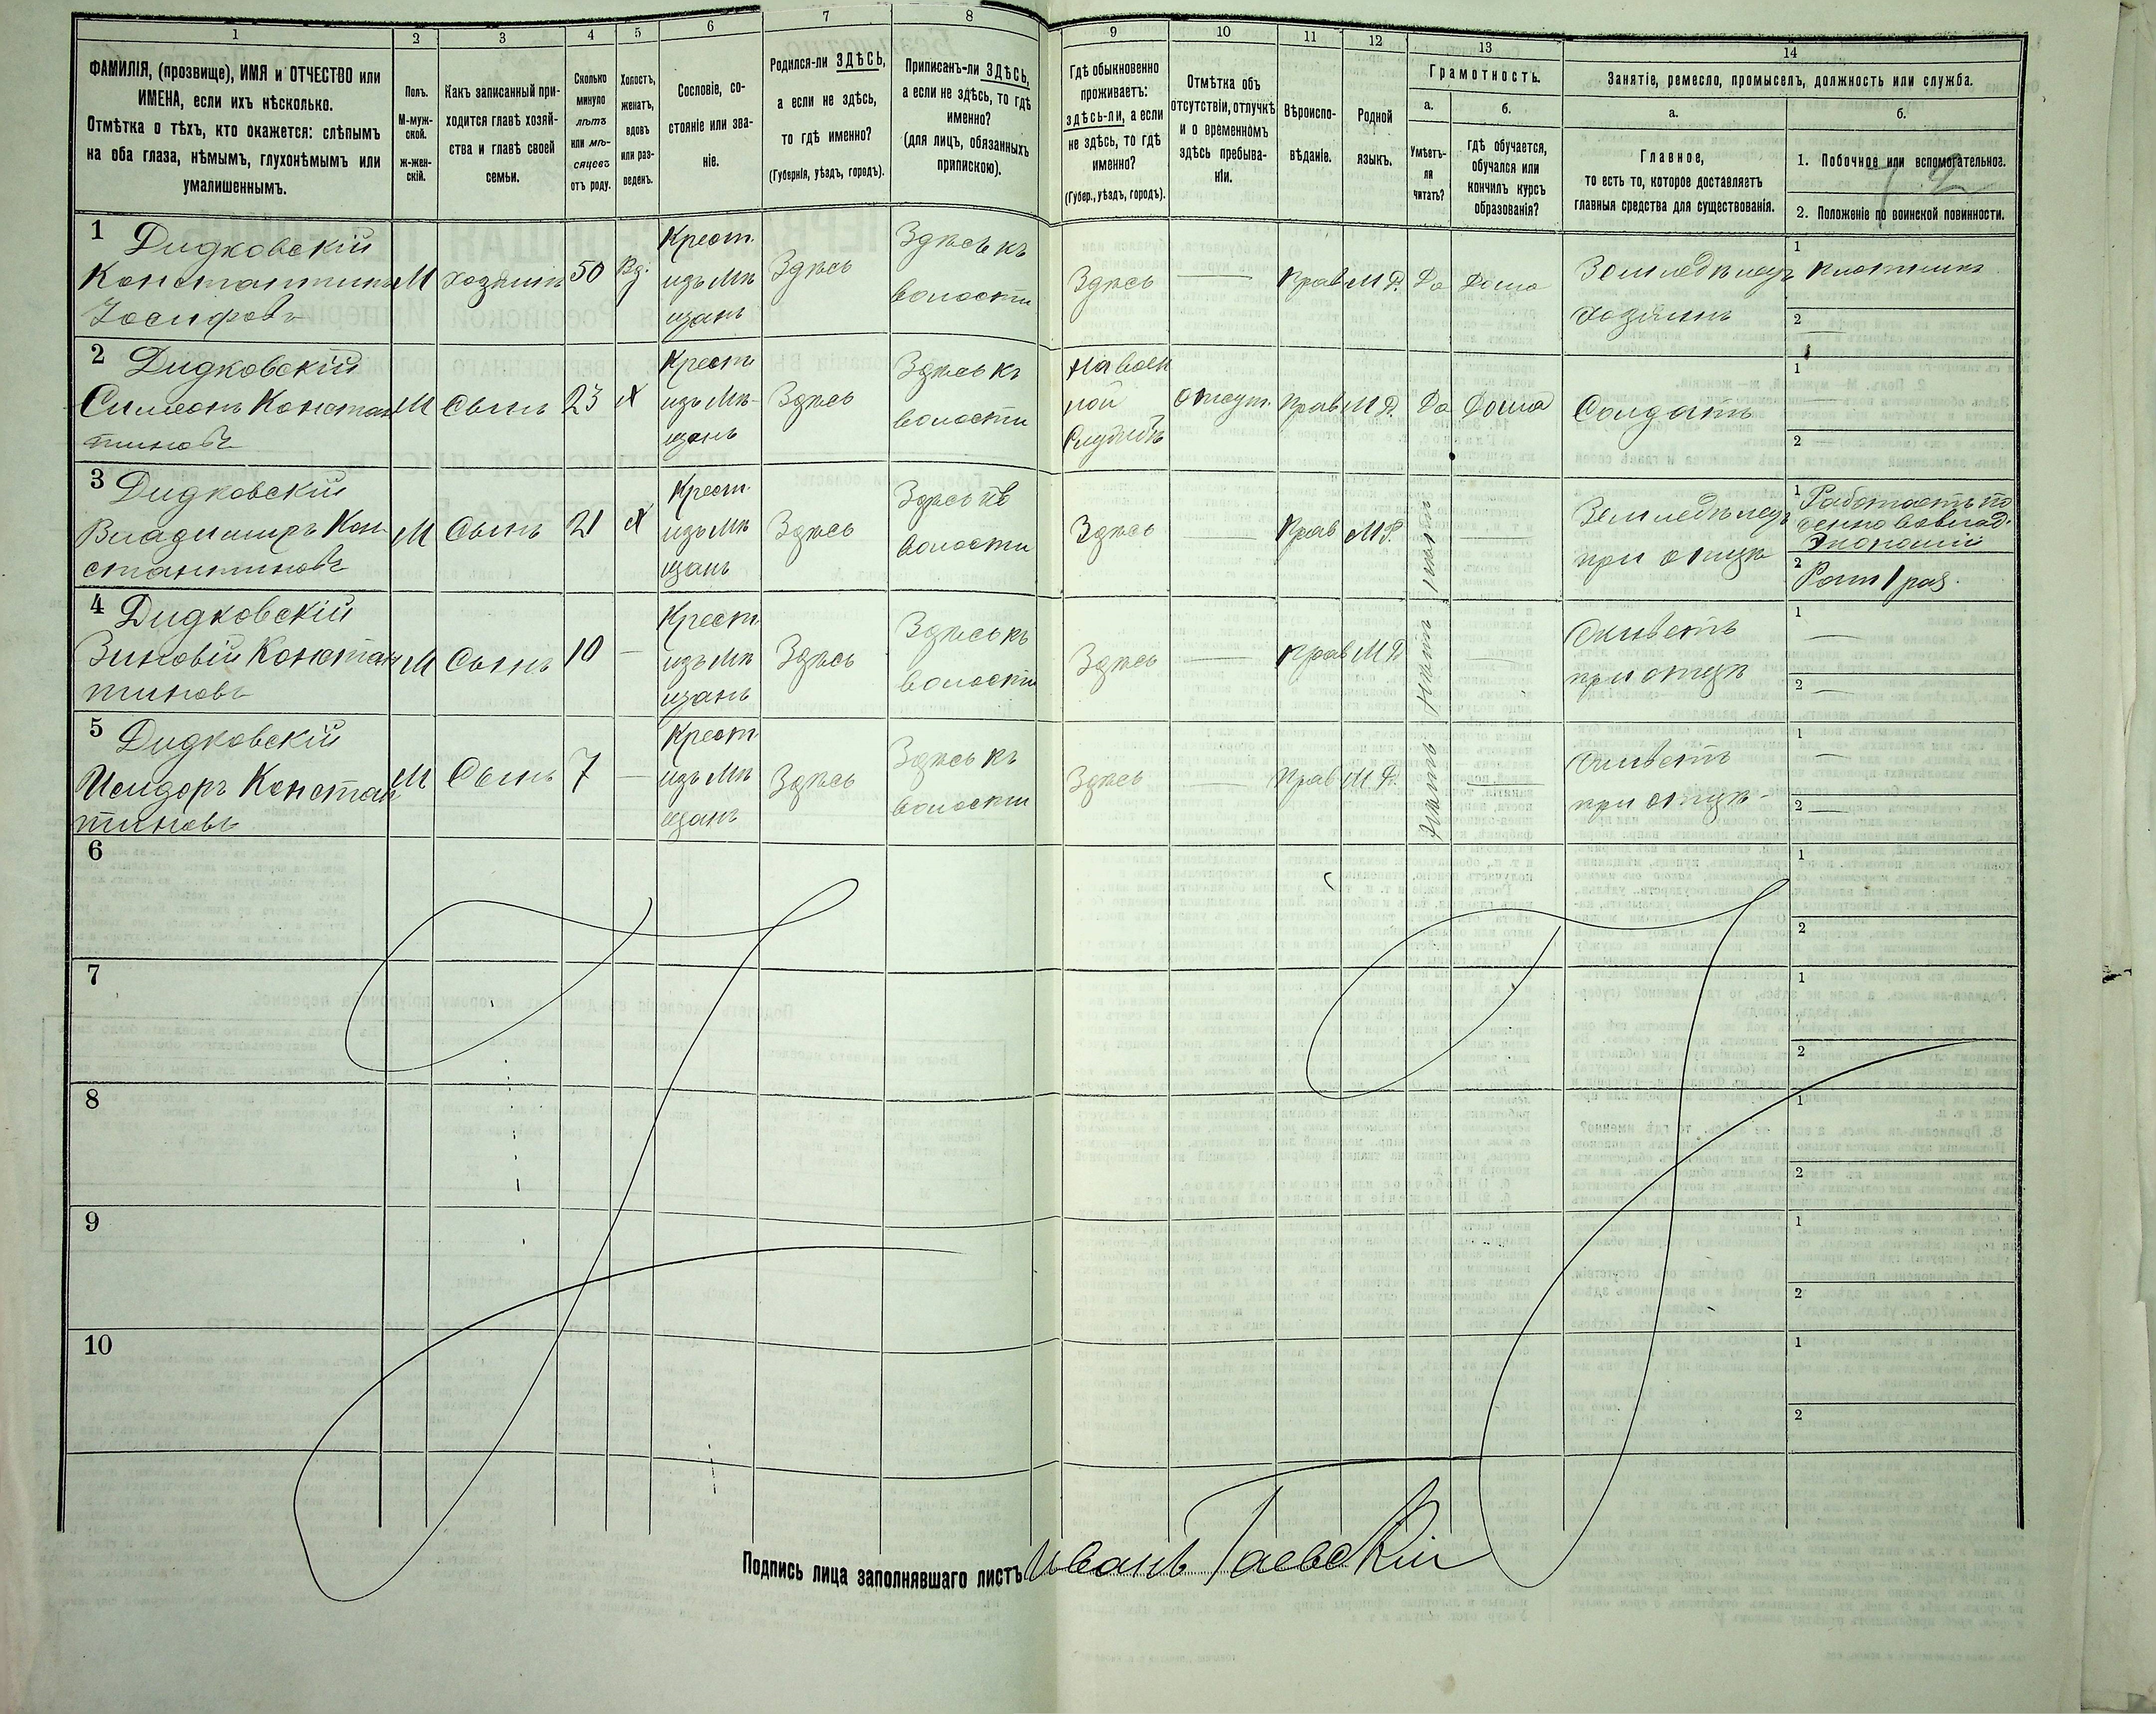 1 2 3 4 5 6 7 8 9 10 11 12 13 14
ФАМИЛІЯ, (прозвище), ИМЯ и ОТЧЕСТВО или
ИМЕНА, если ихъ нѣсколько.
Отмѣтка о тѣхъ, кто окажется: слѣпымъ
на оба глаза, нѣмымъ, глухонѣмымъ или
умалишеннымъ.
Полъ.
М-муж-
ской.
ж-жен-
скій.
Какъ записанный при-
ходится главѣ хозяй-
ства и главѣ своей
семьи.
Сколько
минуло
лѣтъ
или мѣ-
сяцевъ
отъ роду.
Холостъ,
женатъ,
вдовъ
или раз-
веденъ.
Сословіе, со-
стояніе или зва-
ніе.
Родился-ли ЗДѢСЬ,
а если не здѣсь,
то гдѣ именно?
(Губернія, уѣздъ, городъ).
Приписанъ-ли ЗДѢСЬ,
а если не здѣсь, то гдѣ
именно?
(для лицъ, обязанныхъ
припискою).
Гдѣ обыкновенно
проживаетъ:
здѣсь-ли, а если
не здѣсь, то гдѣ
именно?
(Губер., уѣздъ, городъ).
Отмѣтка объ
отсутствіи, отлучкѣ
и о временномъ
здѣсь пребыва-
ніи.
Вѣроиспо-
вѣданіе.
Родной
языкъ.
Грамотность.
а.
Умѣетъ-
ли
читать?
б.
гдѣ обучается,
обучался или
кончилъ курсъ
образованія?
Занятіе, ремесло, промыселъ, должность или служба.
а.
Главное,
то есть то, которое доставляетъ
главныя средства для существованія.
б.
1. Побочное или вспомогательное.
2. Положеніе по воинской повинности.
1 Дидковскій
Константинъ
Іосифовъ
М
Хозяинъ
50
Вд.
Крест.
изъ Мѣ
щанъ
Здѣсь
Здѣсь къ
волости
Здѣсь
—
Прав
М.Р.
Да
Дома
Земледѣлецъ
хозяинъ
1 плотникъ
2 —
2 Дидковскій
Симеонъ Констан
тиновъ
М
Сынъ
23
Х
Крест
изъ Мѣ-
щанъ
Здѣсь
Здѣсь къ
волости
На воен
ной
Службѣ
Отсут.
Прав
М.Р.
Да
Дома
Солдатъ
1 —
2 —
3 Дидковскій
Владимиръ Кон
стантиновъ
М
Сынъ
21
Х
Крест.
изъ Мѣ
щанъ
Здѣсь
Здѣсь къ
волости
Здѣсь
—
Прав
М.Р.
Нѣтъ
—
Земледѣлецъ
при отцѣ
1 Работаетъ по
денно
Экономіи
2 Рат 1 раз.
4 Дидковскій
Зиновій Констан
тиновъ
М
Сынъ
10
—
Крест
изъ Мѣ
щанъ
Здѣсь
Здѣсь къ
волости
Здѣсь
—
Прав
М.Р.
Нѣтъ
—
Живетъ
при отцѣ
1 —
2 —
5 Дидковскій
Исидоръ Констан
тиновъ
М
Сынъ
7
—
Крест
изъ Мѣ
щанъ
Здѣсь
Здѣсь къ
волости
Здѣсь
—
Прав
М.Р.
Нѣтъ
—
Живетъ
при отцѣ-
1 —
2 —
6
1
2
7
1
2
8
1
2
9
1
2
10
1
2
Подпись лица заполнявшаго листъ Иванъ Гаевскій